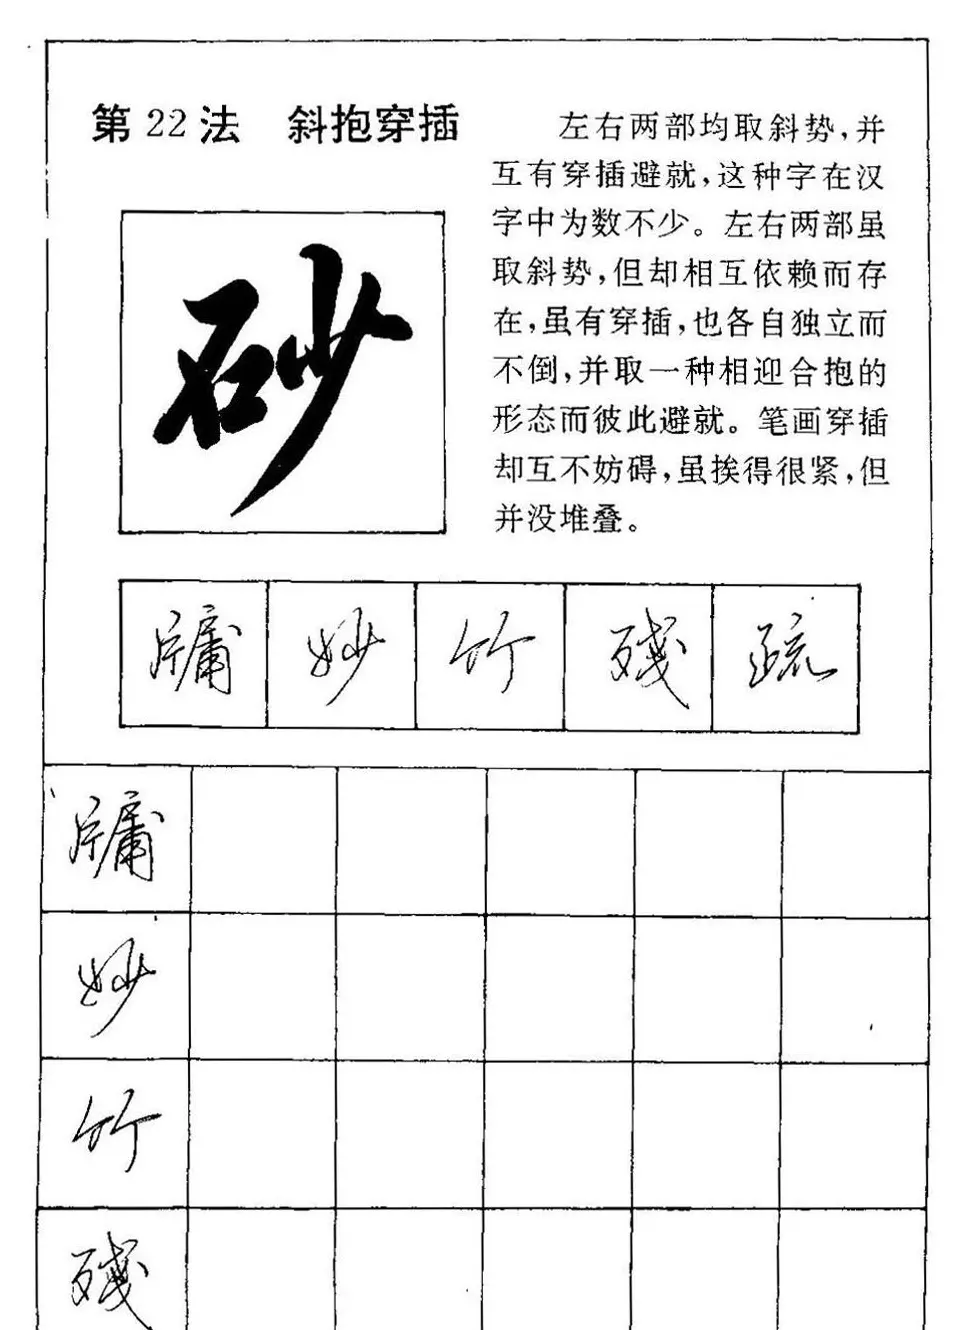 第22法 斜抱穿插
左右两部均取斜势,并
互有穿插避就,这种字在汉
字中为数不少。左右两部虽
取斜势,但却相互依赖而存
在,虽有穿插,也各自独立而
不倒,并取一种相迎合抱的
形态而彼此避就。笔画穿插
却互不妨碍,虽挨得很紧,但
并没堆叠。
砂
牗 妙 竹 残 疏
牗
妙
竹
残